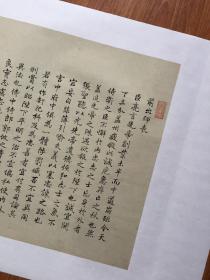 前出師表
臣亮言先帝創業未半而中道崩殂今天
下三分益州疲敝此誠危急存亡之秋也然
侍衛之臣不懈於內忠志之士忘身於外者
蓋追先帝之殊遇欲報之於陛下也誠宜開
張聖聽以光先帝遺德恢弘志士之氣不
宜妄自菲薄引喻失義以塞忠諫之路也
宮中府中俱為一體陟罰臧否不宜異同
若有作姦犯科及為忠善者宜付有司論其
刑賞以昭陛下平明之治不宜偏私使內
外異法也侍中侍郎郭攸之費
良實志慮忠